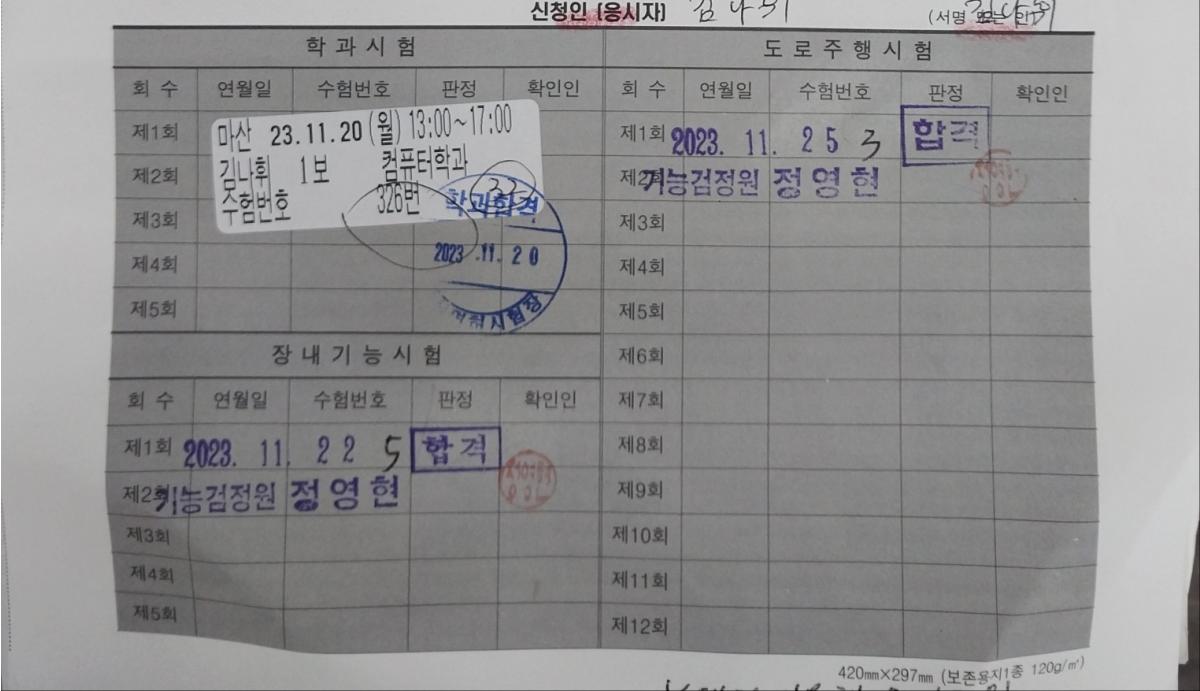 신청인 (응시자) 김나휘 (서명 또는 인)
학 과 시 험
회 수 연월일 수험번호 판정 확인인
제1회
제2회
제3회
제4회
제5회
마산 23.11.20 (월) 13:00~17:00
김나휘 1보 컴퓨터학과
수험번호 326번
학과합격
2023 .11. 20
시험장
장 내 기 능 시 험
회 수 연월일 수험번호 판정 확인인
제1회 2023. 11. 22 5 합격
제2회 기능검정원 정영현
제3회
제4회
제5회
도 로 주 행 시 험
회 수 연월일 수험번호 판정 확인인
제1회 2023. 11. 25 3 합격
제2회 기능검정원 정영현
제3회
제4회
제5회
제6회
제7회
제8회
제9회
제10회
제11회
제12회
420㎜×297㎜ (보존용지1종 120g/㎡)